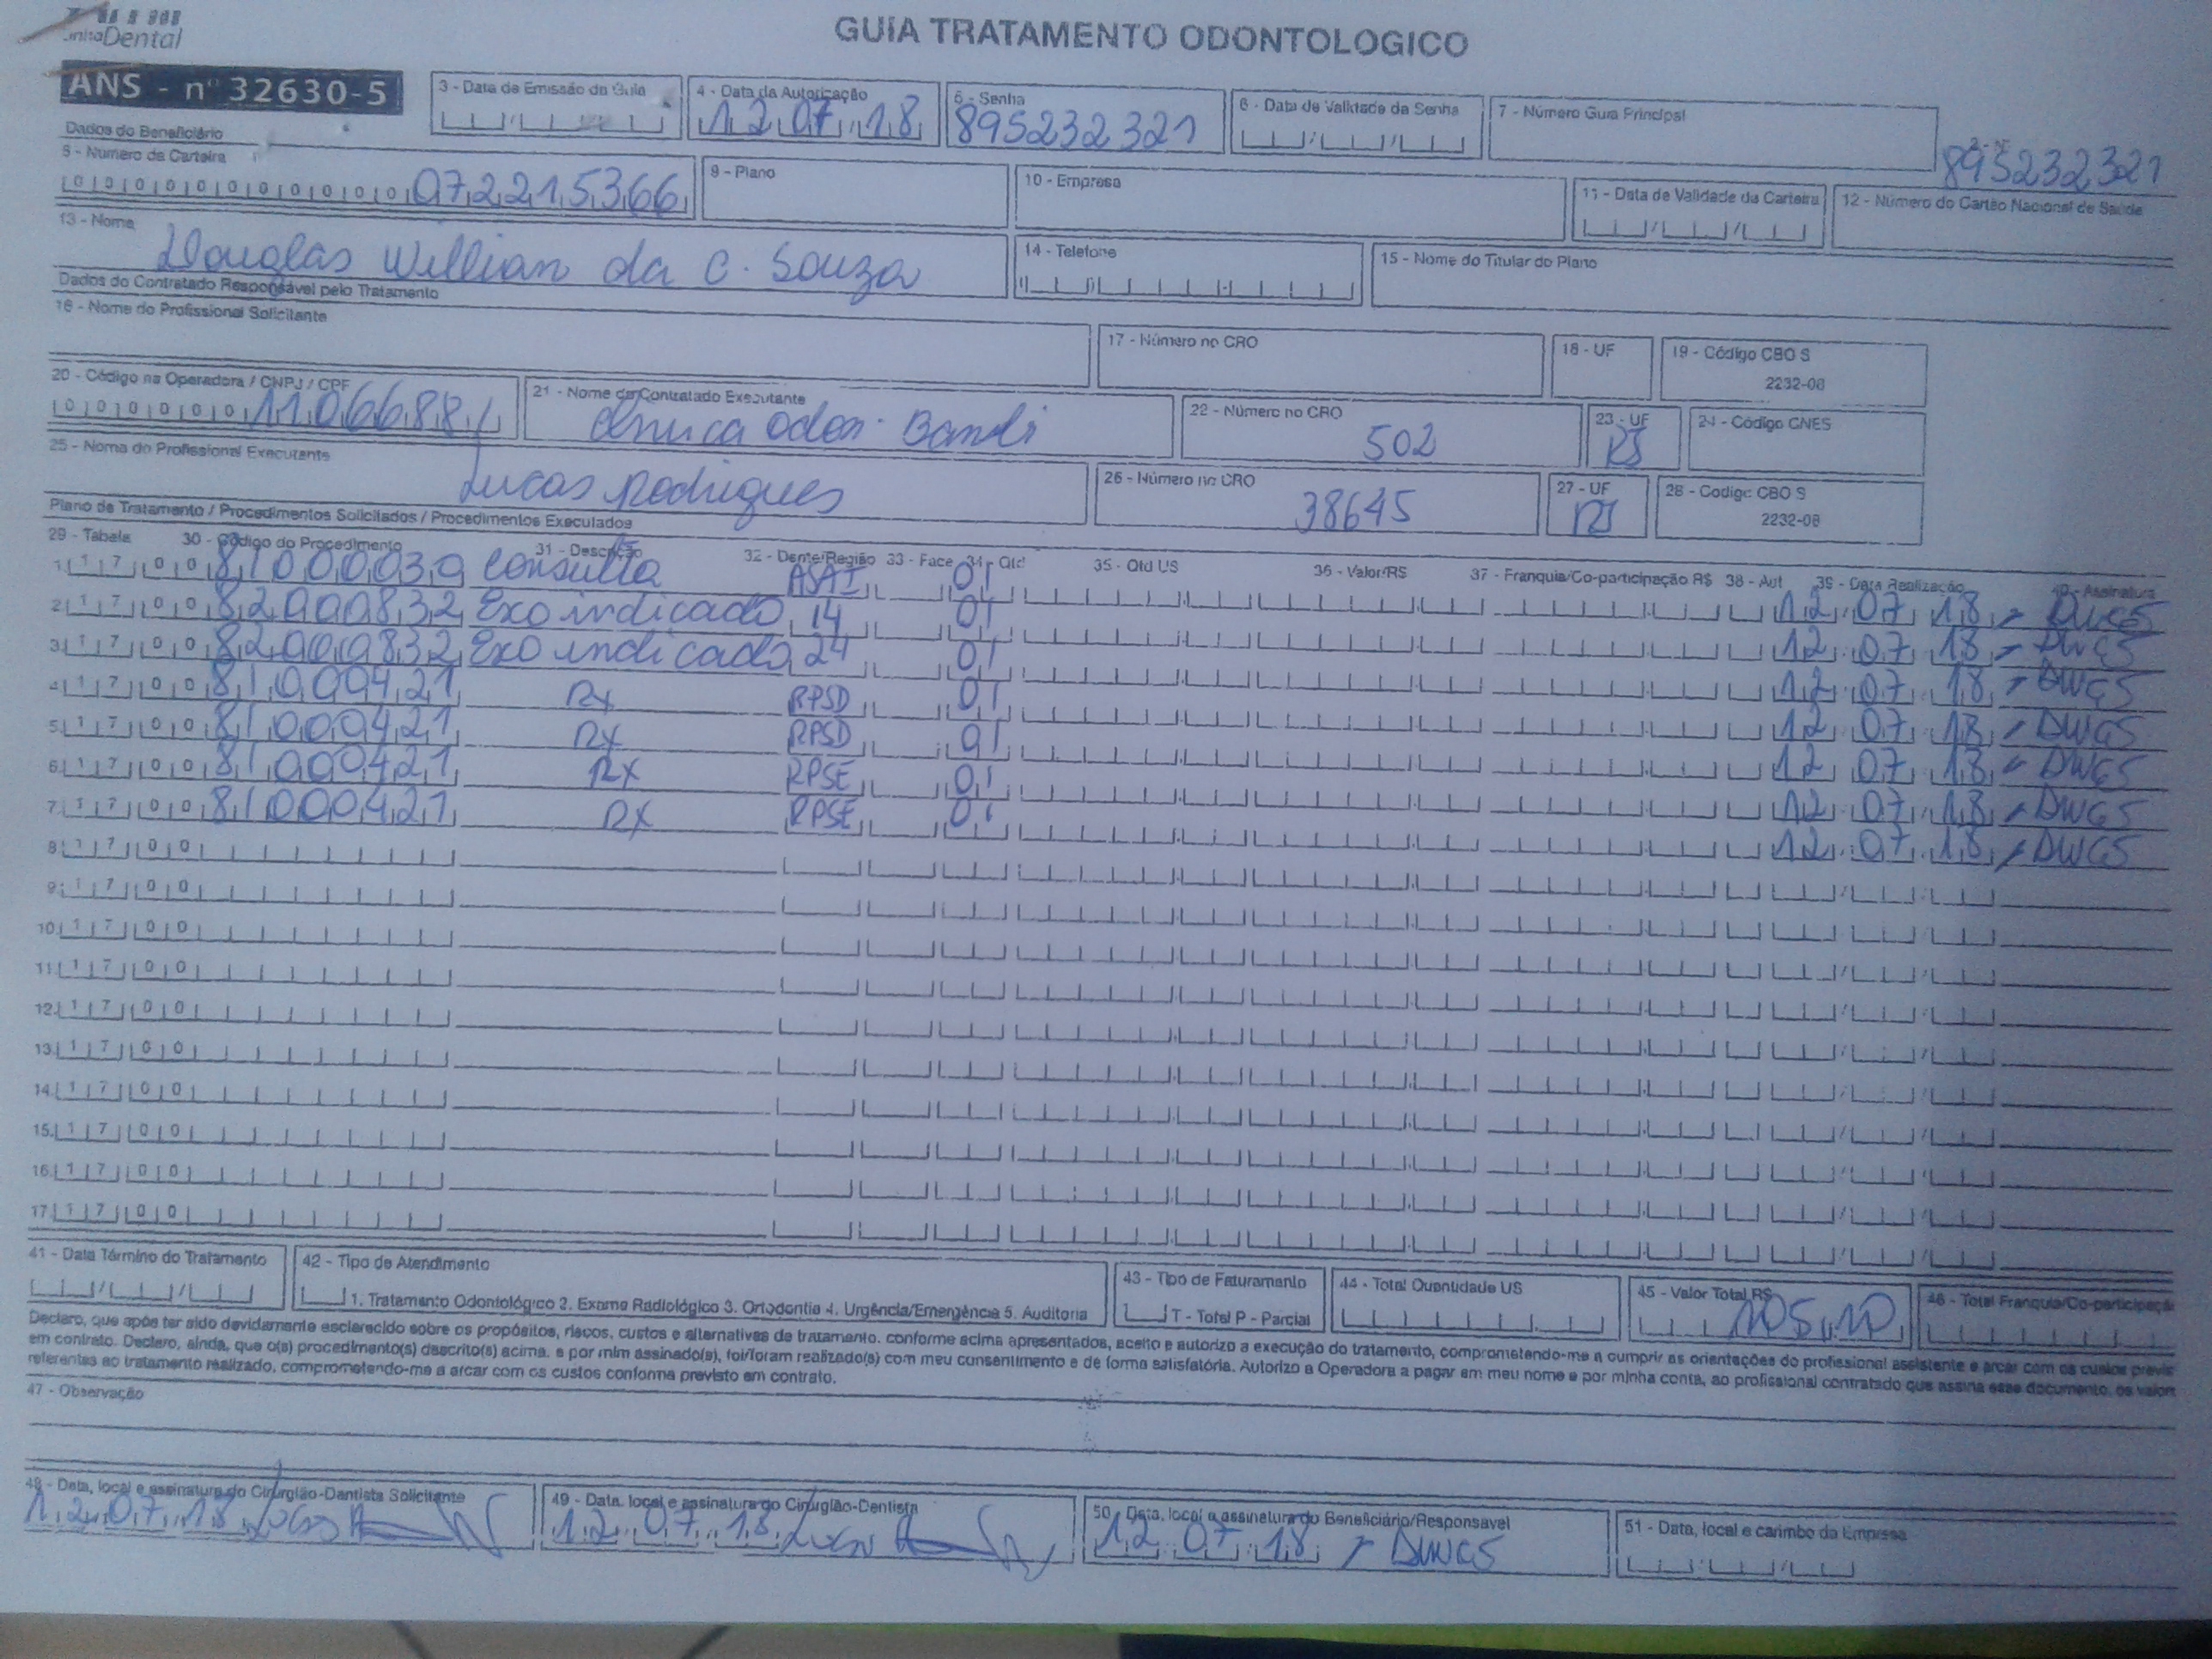 GUIA TRATAMENTO ODONTOLOGICO
2-Nº
895232321
ANS - nº 32630-5
3 - Data de Emissão da Guia
4 - Data da Autorização
12 07 18
5 - Senha
895232321
6 - Data de Validade da Senha
7 - Número Guia Principal
Dados do Beneficiário
8 - Número da Carteira
0 0 0 0 0 0 0 0 0 0 0 072215366
9 - Plano
10 - Empresa
11 - Data de Validade da Carteira
12 - Número do Cartão Nacional de Saúde
13 - Nome
Douglas Willian da C. Souza
14 - Telefone
15 - Nome do Titular do Plano
Dados do Contratado Responsável pelo Tratamento
16 - Nome do Profissional Solicitante
17 - Número no CRO
18 - UF
19 - Código CBO S
2232-08
20 - Código na Operadora / CNPJ / CPF
21 - Nome do Contratado Executante
22 - Número no CRO
502
23 - UF
RJ
24 - Código CNES
25 - Nome do Profissional Executante
Lucas Rodrigues
26 - Número no CRO
38645
27 - UF
RJ
28 - Codigo CBO S
2232-08
Plano de Tratamento / Procedimentos Solicitados / Procedimentos Executados
29 - Tabela 30 - Código do Procedimento 31 - Descrição 32 - Dente/Região 33 - Face 34 - Qtd 35 - Qtd US 36 - Valor/R$ 37 - Franquia/Co-participação R$ 38 - Aut 39 - Data Realização 40 - Assinatura
1 1 7 0 0 81000030 Consulta ASAI 01 12 07 18 DWCS
2 1 7 0 0 82000832 Exo indicado 14 01 12 07 18 DWCS
3 1 7 0 0 82000832 Exo indicado 24 01 12 07 18 DWCS
4 1 7 0 0 81000421 Rx RPSD 01 12 07 18 DWCS
5 1 7 0 0 81000421 Rx RPSD 01 12 07 18 DWCS
6 1 7 0 0 81000421 Rx RPSE 01 12 07 18 DWCS
7 1 7 0 0 81000421 Rx RPSE 01 12 07 18 DWCS
8 1 7 0 0
9 1 7 0 0
10 1 7 0 0
11 1 7 0 0
12 1 7 0 0
13 1 7 0 0
14 1 7 0 0
15 1 7 0 0
16 1 7 0 0
17 1 7 0 0
41 - Data Término do Tratamento
42 - Tipo de Atendimento
1. Tratamento Odontológico 2. Exame Radiológico 3. Ortodontia 4. Urgência/Emergência 5. Auditoria
43 - Tipo de Faturamento
T - Total P - Parcial
44 - Total Quantidade US
45 - Valor Total R$
46 - Total Franquia/Co-participação
Declaro, que após ter sido devidamente esclarecido sobre os propósitos, riscos, custos e alternativas de tratamento, conforme acima apresentados, aceito e autorizo a execução do tratamento, comprometendo-me a cumprir as orientações do profissional assistente e arcar com os custos previs
em contrato. Declaro, ainda, que o(s) procedimento(s) descrito(s) acima, e por mim assinado(s), foi/foram realizado(s) com meu consentimento e de forma satisfatória. Autorizo a Operadora a pagar em meu nome e por minha conta, ao profissional contratado que assina esse documento, os valor
referentes ao tratamento realizado, comprometendo-me a arcar com os custos conforme previsto em contrato.
47 - Observação
48 - Data, local e assinatura do Cirurgião-Dentista Solicitante
12 07 18
49 - Data, local e assinatura do Cirurgião-Dentista
12 07 18
50 - Data, local e assinatura do Beneficiário/Responsável
12 07 18 DWCS
51 - Data, local e carimbo da Empresa